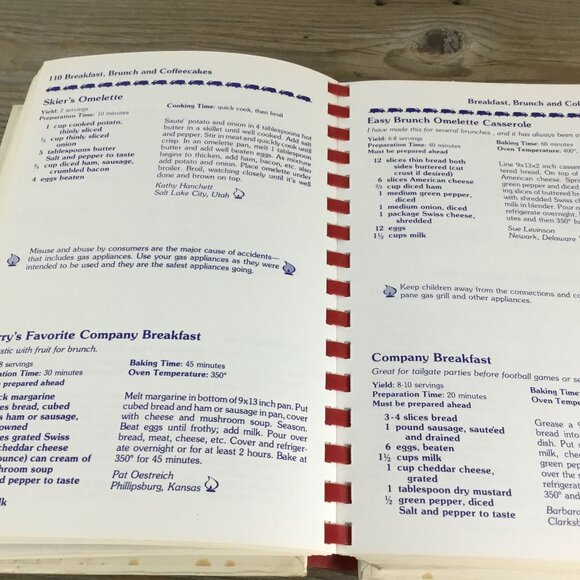 110 Breakfast, Brunch and Coffeecakes
Skier's Omelette
Yield: 2 servings
Preparation Time: 10 minutes
Cooking Time: quick cook, then broil
1 cup cooked potato,
thinly sliced
½ cup thinly sliced
onion
5 tablespoons butter
Salt and pepper to taste
½ cup diced ham, sausage,
crumbled bacon
4 eggs beaten
Sauté potato and onion in 4 tablespoons hot
butter in a skillet until well cooked. Add salt
and pepper. Stir in meat and quickly cook until
crisp. In an omelette pan, melt 1 tablespoon
butter and add well beaten eggs. As mixture
begins to thicken, add ham, bacon, etc. also
add potato and onion. Place omelette under
broiler. Broil, watching closely until it's well
done and brown on top.
Kathy Hanchett
Salt Lake City, Utah
Misuse and abuse by consumers are the major cause of accidents—
that includes gas appliances. Use your gas appliances as they were
intended to be used and they are the safest appliances going.
rry's Favorite Company Breakfast
stic with fruit for brunch.
8 servings
ration Time: 30 minutes
e prepared ahead
Baking Time: 45 minutes
Oven Temperature: 350°
ck margarine
es bread, cubed
s ham or sausage,
owned
es grated Swiss
cheddar cheese
ounce) can cream of
hroom soup
d pepper to taste
lk
Melt margarine in bottom of 9x13 inch pan. Put
cubed bread and ham or sausage in pan, cover
with cheese and mushroom soup. Season.
Beat eggs until frothy; add milk. Pour over
bread, meat, cheese, etc. Cover and refriger-
ate overnight or for at least 2 hours. Bake at
350° for 45 minutes.
Pat Oestreich
Phillipsburg, Kansas
Breakfast, Brunch and Cof
Easy Brunch Omelette Casserole
I have made this for several brunches , and it has always been a
Yield: 6-8 servings
Preparation Time: 40 minutes
Must be prepared ahead
Baking Time: 60 minutes
Oven Temperature: 400°,
12 slices thin bread both
sides buttered (cut
crust if desired)
6 slices American cheese
⅔ cup diced ham
1 medium green pepper,
diced
1 medium onion, diced
1 package Swiss cheese,
shredded
12 eggs
1½ cups milk
Line 9x13x2 inch casser
tered bread. On top of
American cheese. Spri
green pepper and diced
ing slices of buttered br
with shredded Swiss c
milk in blender. Pour o
refrigerate overnight.
utes and then 350° for
Sue Levinson
Newark, Delaware
Keep children away from the connections and c
pane gas grill and other appliances.
Company Breakfast
Great for tailgate parties before football games or s
Yield: 8-10 servings
Preparation Time: 20 minutes
Must be prepared ahead
Baking Time:
Oven Temp
3-4 slices bread
1 pound sausage, sauteéd
and drained
6 eggs, beaten
1½ cups milk
1 cup cheddar cheese,
grated
1 tablespoon dry mustard
½ green pepper, diced
Salt and pepper to taste
Grease a 9
bread into
dish. Put s
milk, chee
green pep
over mea
refrigerat
350° and
Barbara
Clarksb